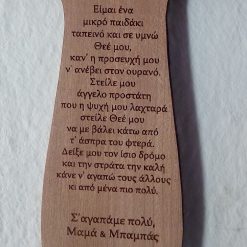 Είμαι ένα
μικρό παιδάκι
ταπεινό και σε υμνώ
Θεέ μου,
καν' η προσευχή μου
ν' ανέβει στον ουρανό.
Στείλε μου
άγγελο προστάτη
που η ψυχή μου λαχταρά
στείλε Θεέ μου
να με βάλει κάτω από
τ' άσπρα του φτερά.
Δείξε μου τον ίσιο δρόμο
και την στράτα την καλή
κάνε ν' αγαπώ τους άλλους
κι από μένα πιο πολύ.
Σ'αγαπάμε πολύ,
Μαμά & Μπαμπάς